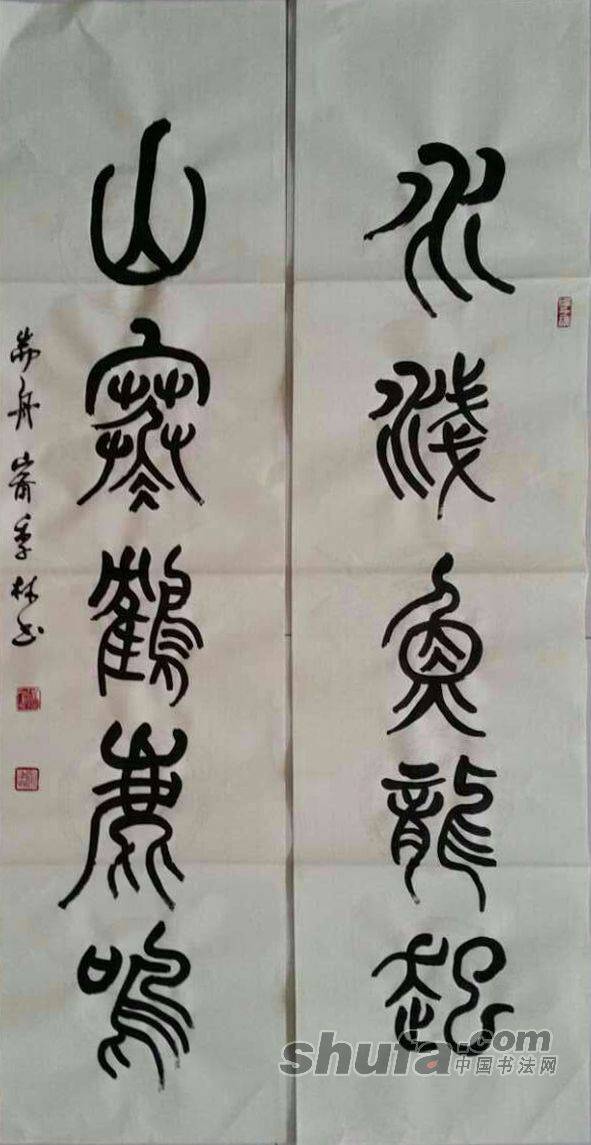 水淺魚龍起
山寒鶴鹿鳴
季林书
shufa.com
中国书法网